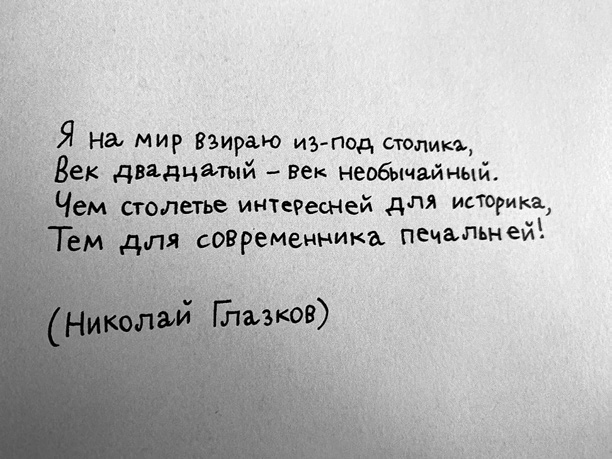 Я на мир взираю из-под столика,
Век двадцатый – век необычайный.
Чем столетье интересней для историка,
Тем для современника печальней!
(Николай Глазков)